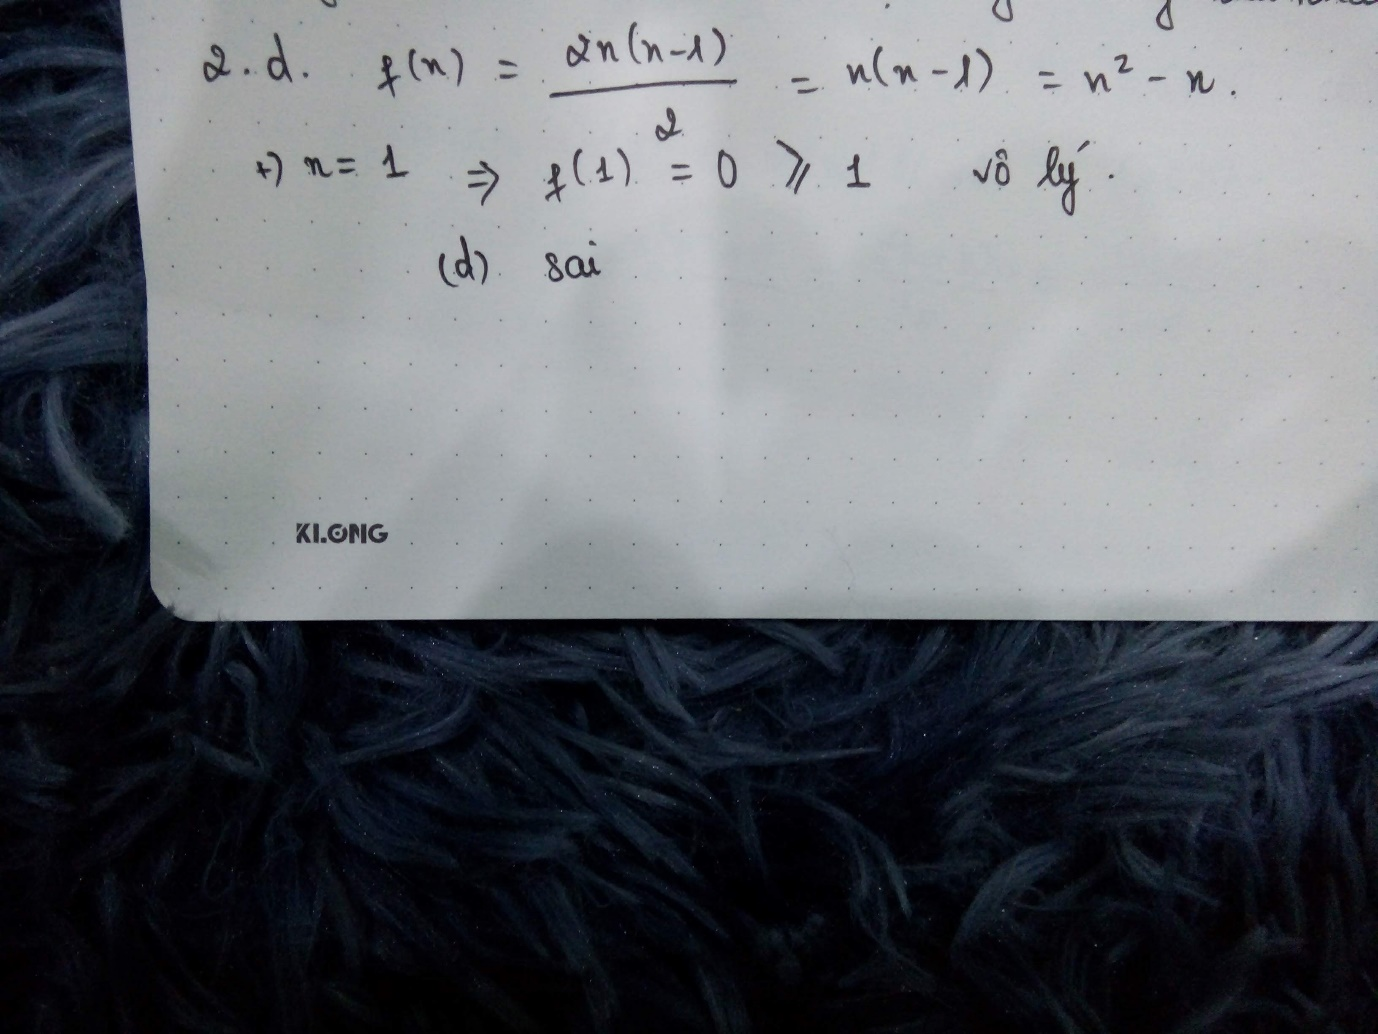 2.d. f(n) = 2n(n-1) / 2 = n(n-1) = n² - n.
+) n = 1 ⇒ f(1) = 0 ⩾ 1 vô lý.
(d) sai
KLONG